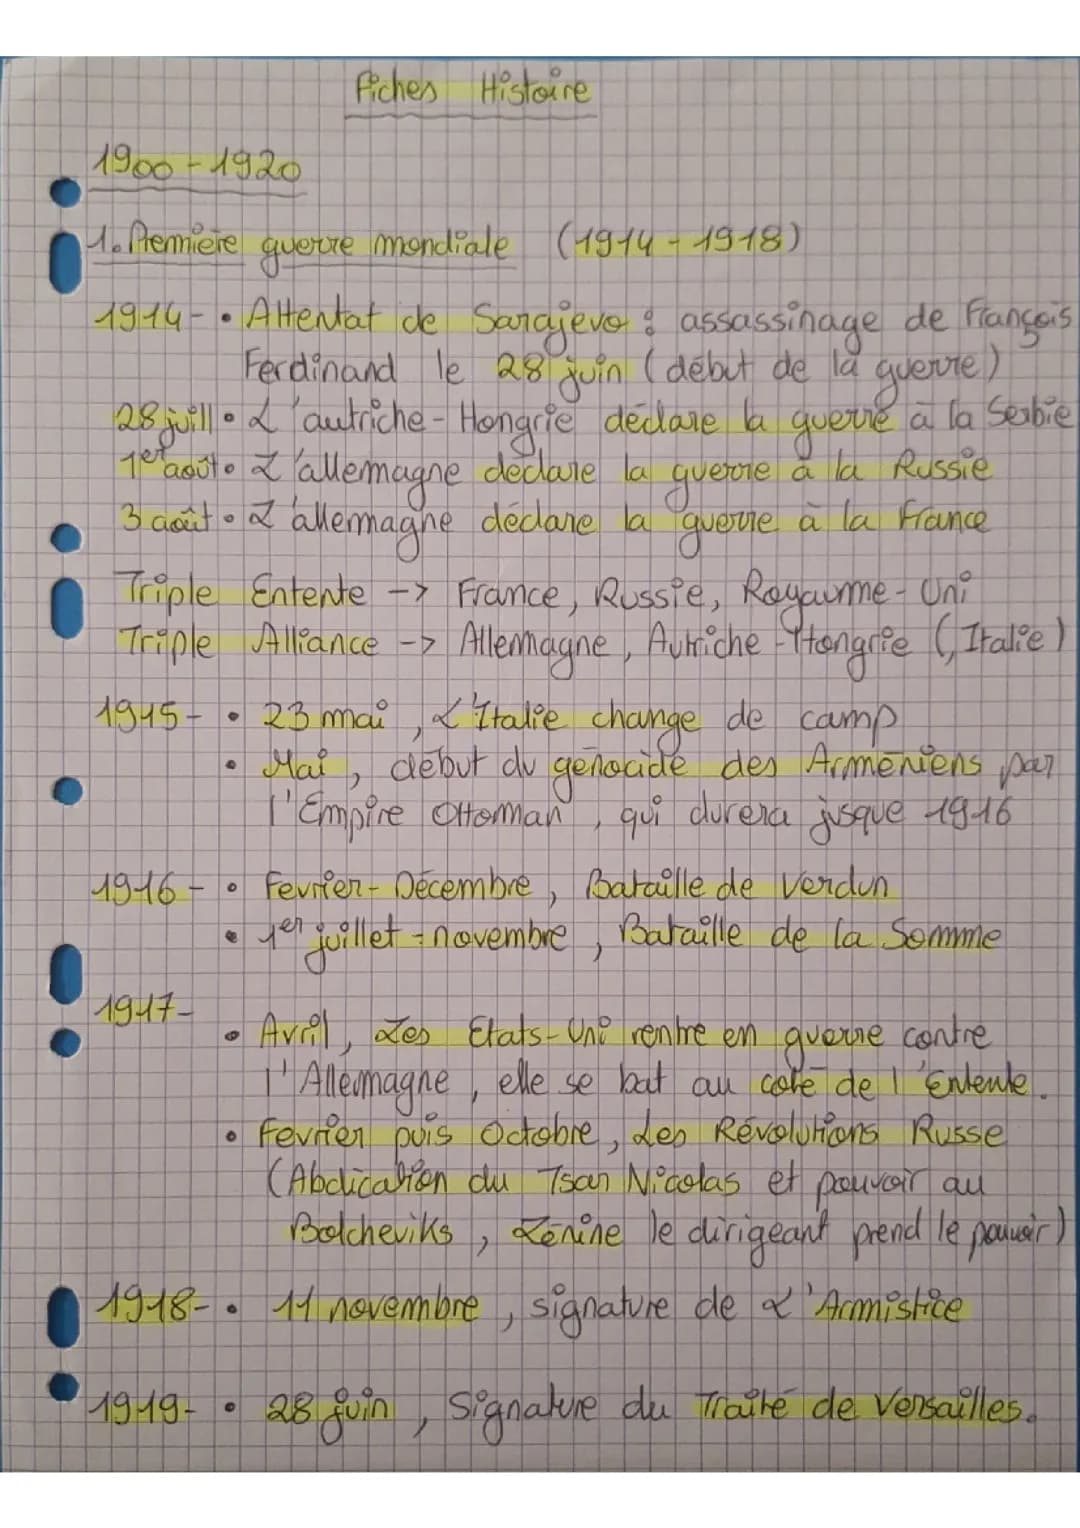 Fiches Histoire
1900-1920
1. Premiere guerre mondiale (1914-1918)
1914- • Attentat de Sarajevo : assassinage de François
Ferdinand le 28 juin (début de la guerre)
28 juill • L'autriche-Hongrie déclare la guerre à la Serbie
1er août • L'allemagne déclare la guerre à la Russie
3 août • L'allemagne déclare la guerre à la France
Triple Entente -> France, Russie, Royaume-Uni
Triple Alliance -> Allemagne, Autriche-Hongrie (, Italie)
1915- • 23 mai, L'Italie change de camp
• Mai, début du génocide des Arméniens par
l'Empire Ottoman, qui durera jusque 1916
1916- • Fevrier-Décembre, Bataille de Verdun
• 1er juillet-novembre, Bataille de la Somme
1917-
• Avril, Les Etats-Uni rentre en guerre contre
l'Allemagne, elle se bat au coté de l'Entente.
• Fevrier puis Octobre, Les Révolutions Russe
(Abdication du Tsar Nicolas et pouvoir au
Bolcheviks, Lénine le dirigeant prend le pouvoir)
1918- • 11 novembre, signature de L'Armistice
1919- • 28 juin, Signature du Traité de Versailles.